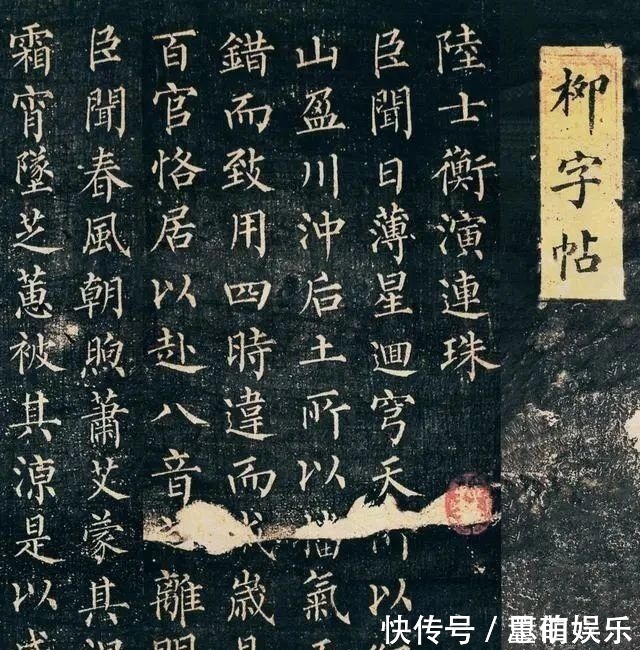 柳字帖
陸士衡演連珠
臣聞日薄星迴穹天所以
山盈川沖后土所以播氣五
錯而致用四時違而成歲是
百官恪居以赴八音之離
臣聞春風朝煦蕭艾蒙其溫
霜宵墜芝蕙被其涼是以威
快传号 / 娱乐